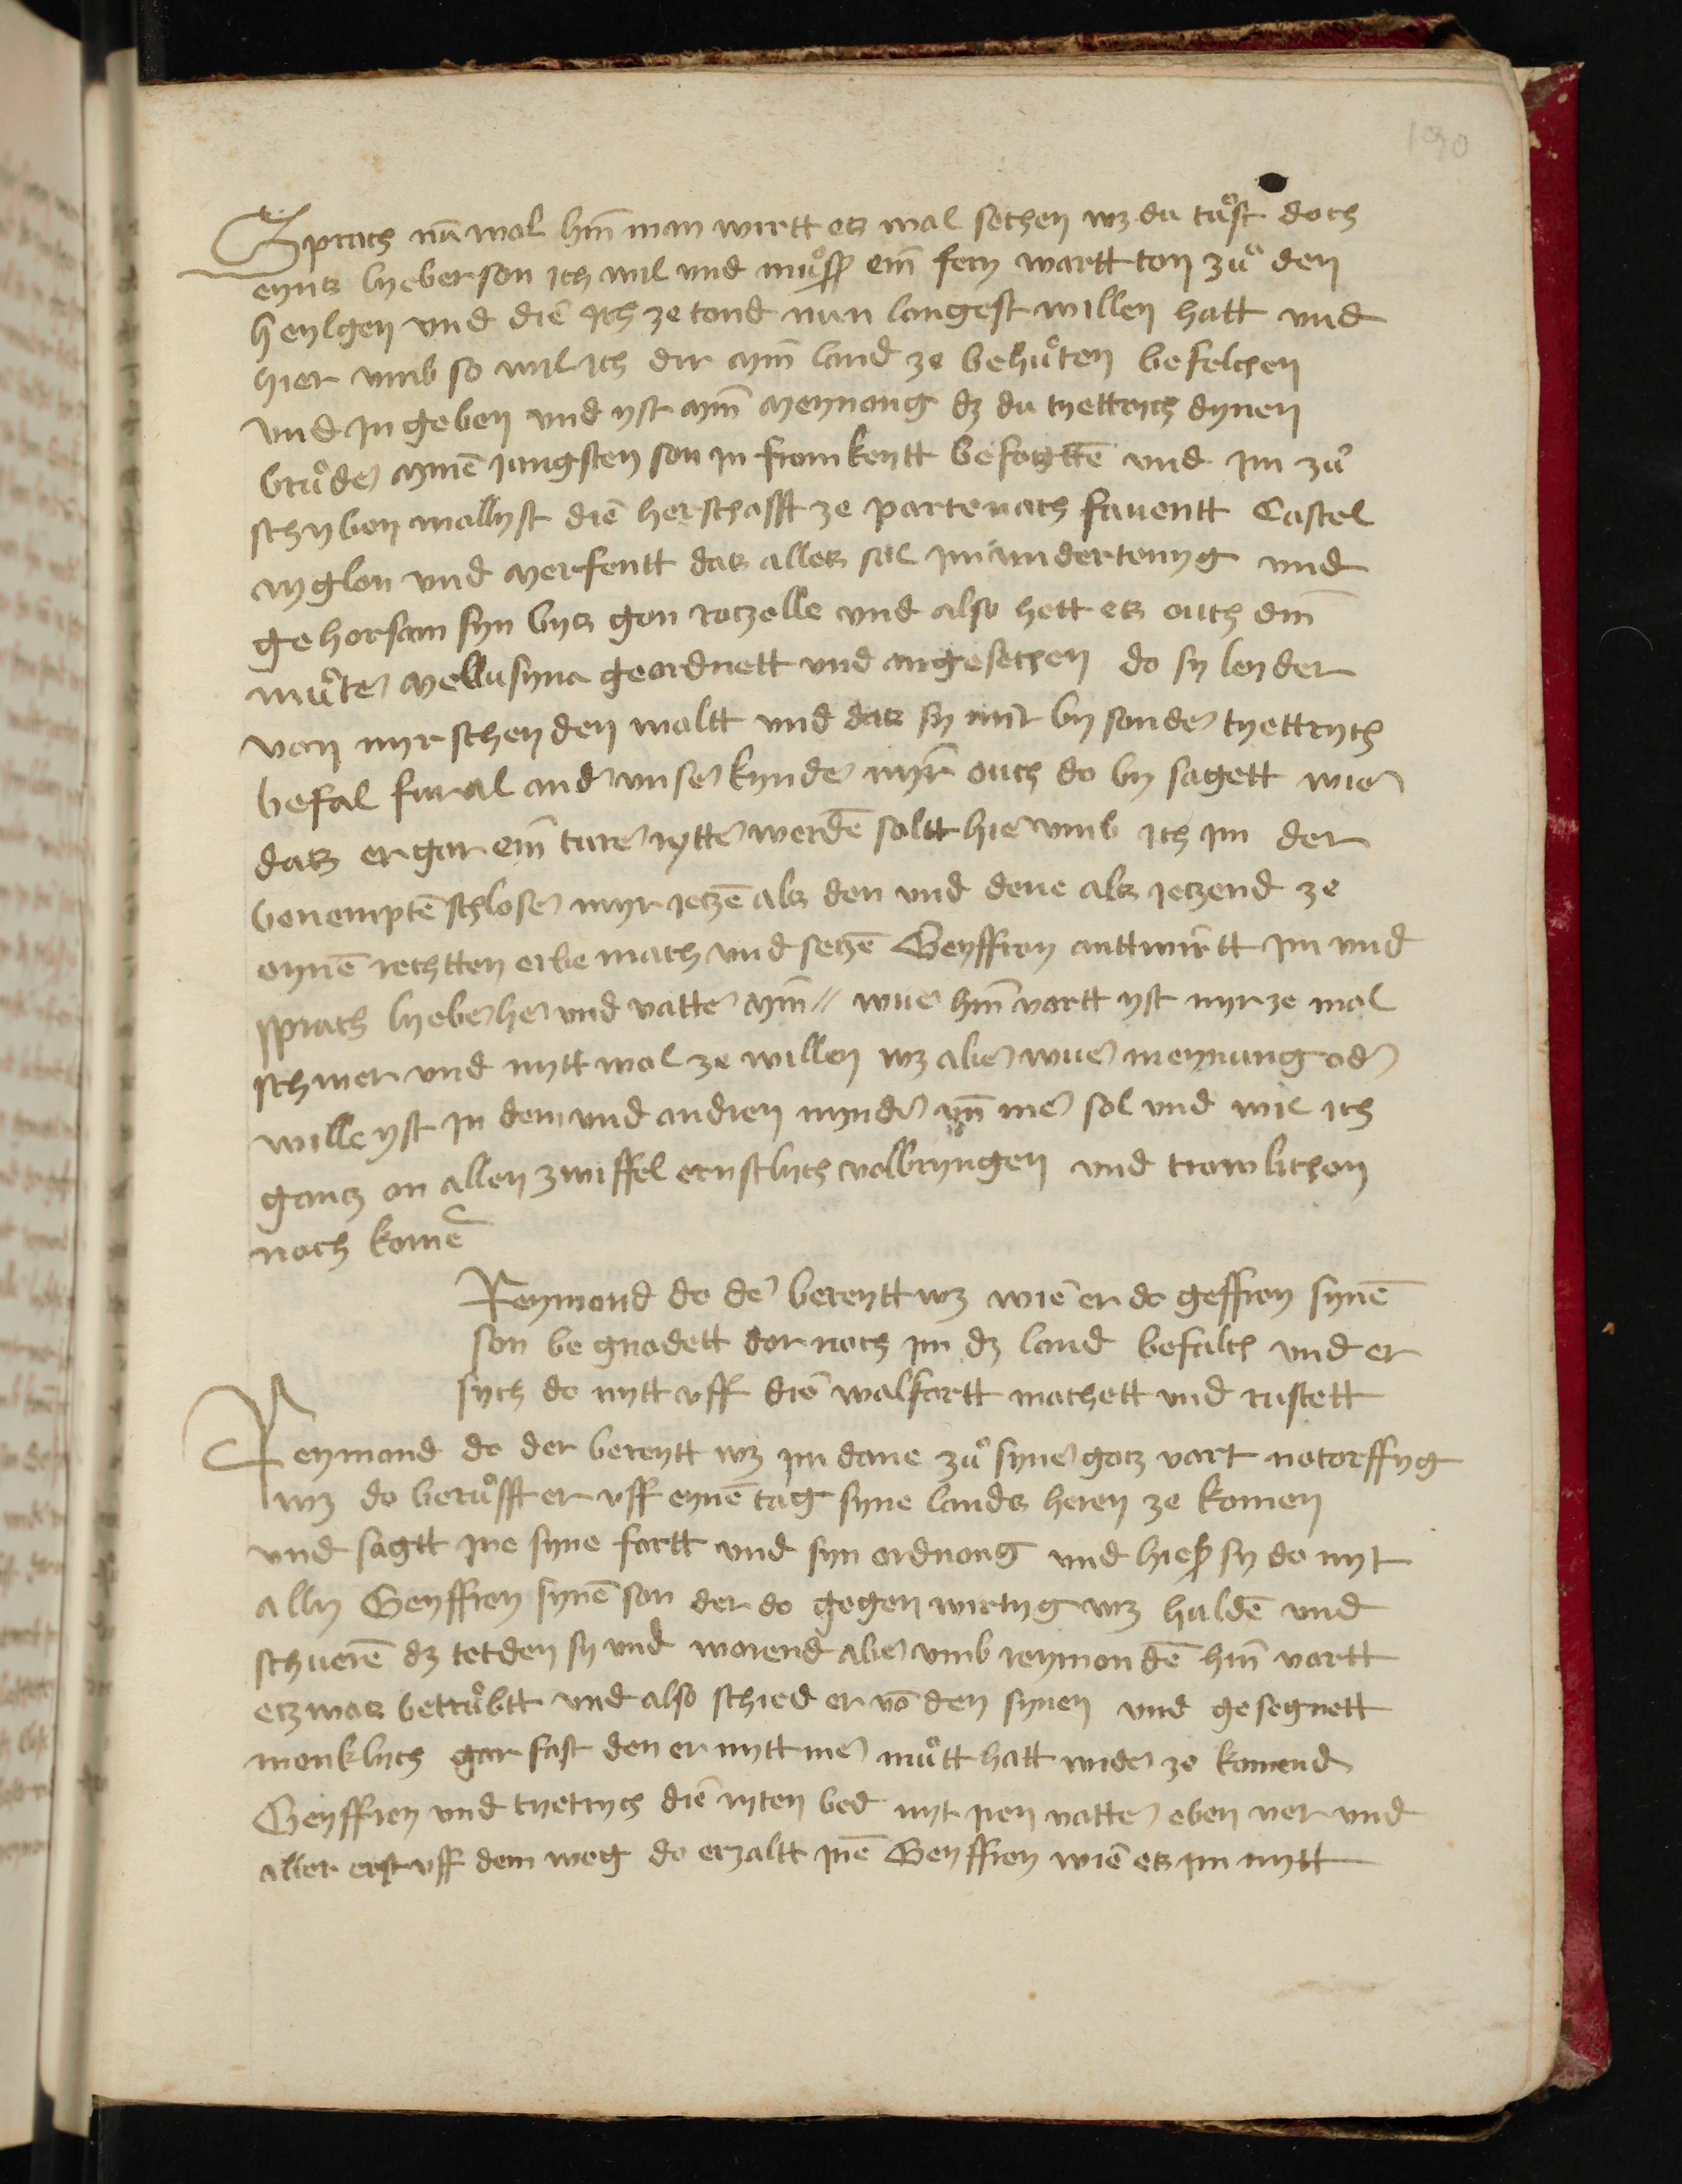 190
Sprach nū wol hin̄ man wirtt es wol sechen wz du tůst doch
eyns lyeber son ich wil vnd můsß ein̄ fery wartt ton zů den
heylgen vnd die ich ze tond nun langest willen hatt vnd
hier vmb so wil ich dir myn̄ land ze behůten befelchen
vnd in geben vnd yst myn̄ meynong dz du tyettrych dynen
brůder mynē jungsten son in fromkeytt befogttē vnd im zů
schyben wollyst die herschafft ze partenach fauentt Castel
vyglon vnd merfentt das alles sol im vndertenyg vnd
gehorsam syn bys gon roczelle vnd also hett es ouch din̄
můter mellusyna geordnett vnd angesechen do sy leyder
von myr scheyden woltt vnd das sy mir bysonder tyettrych
befal fur al ander vnser kynder myr ouch do by sagett wie
das er gar ein̄ turer rytter werdē soltt hie vmb ich im der
benemptē schloser myr jeczē als den vnd dene als jeczend ze
eynē rechtten erbe mach vnd seczē Geyffroy anttwirtt im vnd
sprach lyeber her vnd vatter myn̄ // wuer hin̄ vartt yst myr ze mol
schwer vnd nytt wol ze willen wz aber wuer meynung oder
wille yst in dem vnd andren mynder vn̄ mer sol vnd wil ich
gancz on allen zwiffel ernstlych volbryngen vnd trowlichen
noch komē
Reymond do der bereytt wz wie er do geffroy synē
son begnodett dor noch im dz land befalch vnd er
sych do mytt vff die walfartt machett vnd rustett
Reymond do der bereytt wz im dane zů syner gocz vart notorffyg
wz do berůfft er vff eynē tag syne lands heren ze komen
vnd sagtt ine syne fartt vnd syn ordnong vnd hieß sy do myt
ally Geyffroy synē son der do gegenwirtyg wz huldē vnd
schwerē dz tetden sy vnd worend aber vmb reymondē hin̄ vartt
eczwas betrůbtt vnd also schied er vō den synen vnd gesegnett
menklych gar fast den er nytt mer můtt hatt wider ze komend
Geyffroy vnd tyetrych die ryten bed myt iren vatter eben ver vnd
aller erst vff dem weg do erzaltt inē Geyffroy wie es im mytt